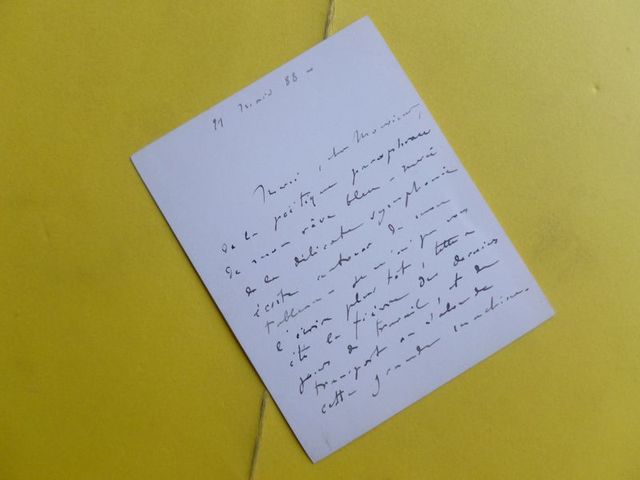 mars 88 -
Merci, cher Monsieur,
de la poétique paraphrase
de mon rêve bleu - merci
de la délicate symphonie
écrite autour de mon
tableau - Je n'ai pu vous
l'écrire plus tôt,
été la fièvre des derniers
jours de travail, et du
transport
cette grande machine.